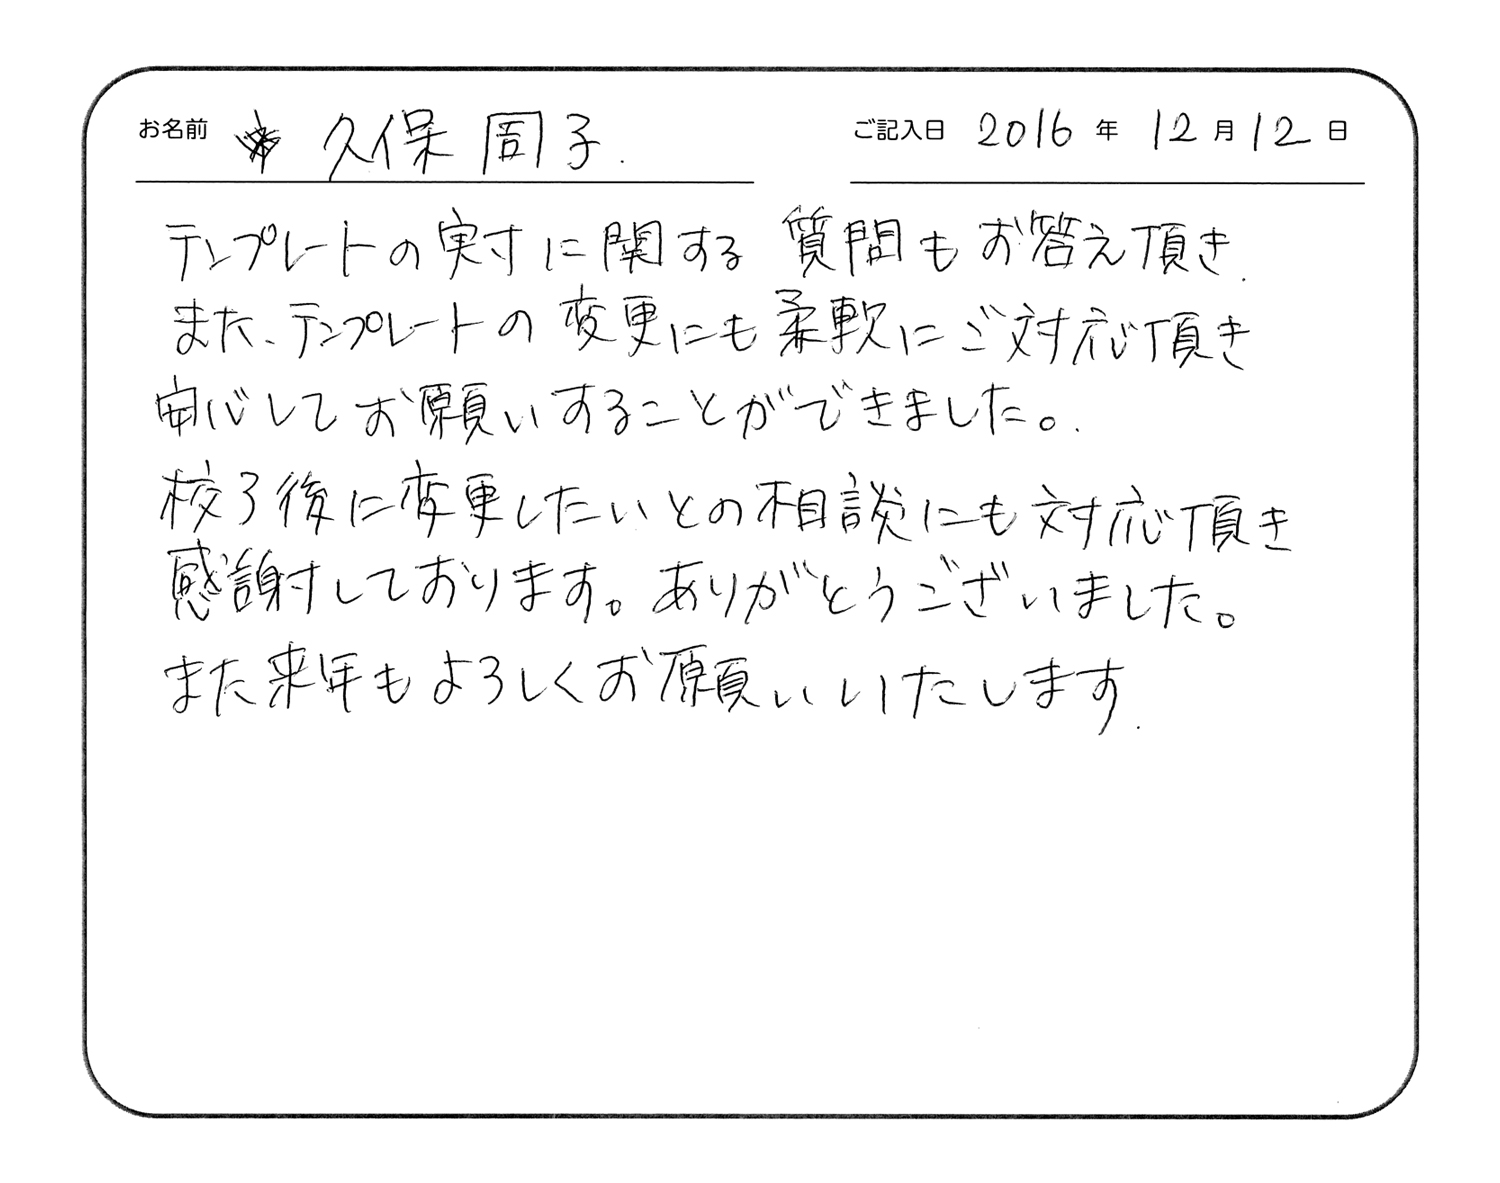 お名前 久保 周子. ご記入日 2016 年 12 月 12 日
テンプレートの実寸に関する 質問もお答え頂き.
また、テンプレートの変更にも柔軟にご対応頂き
安心してお願いすることができました。.
校了後に変更したいとの相談にも対応頂き
感謝しております。ありがとうございました。
また来年もよろしくお願いいたします.